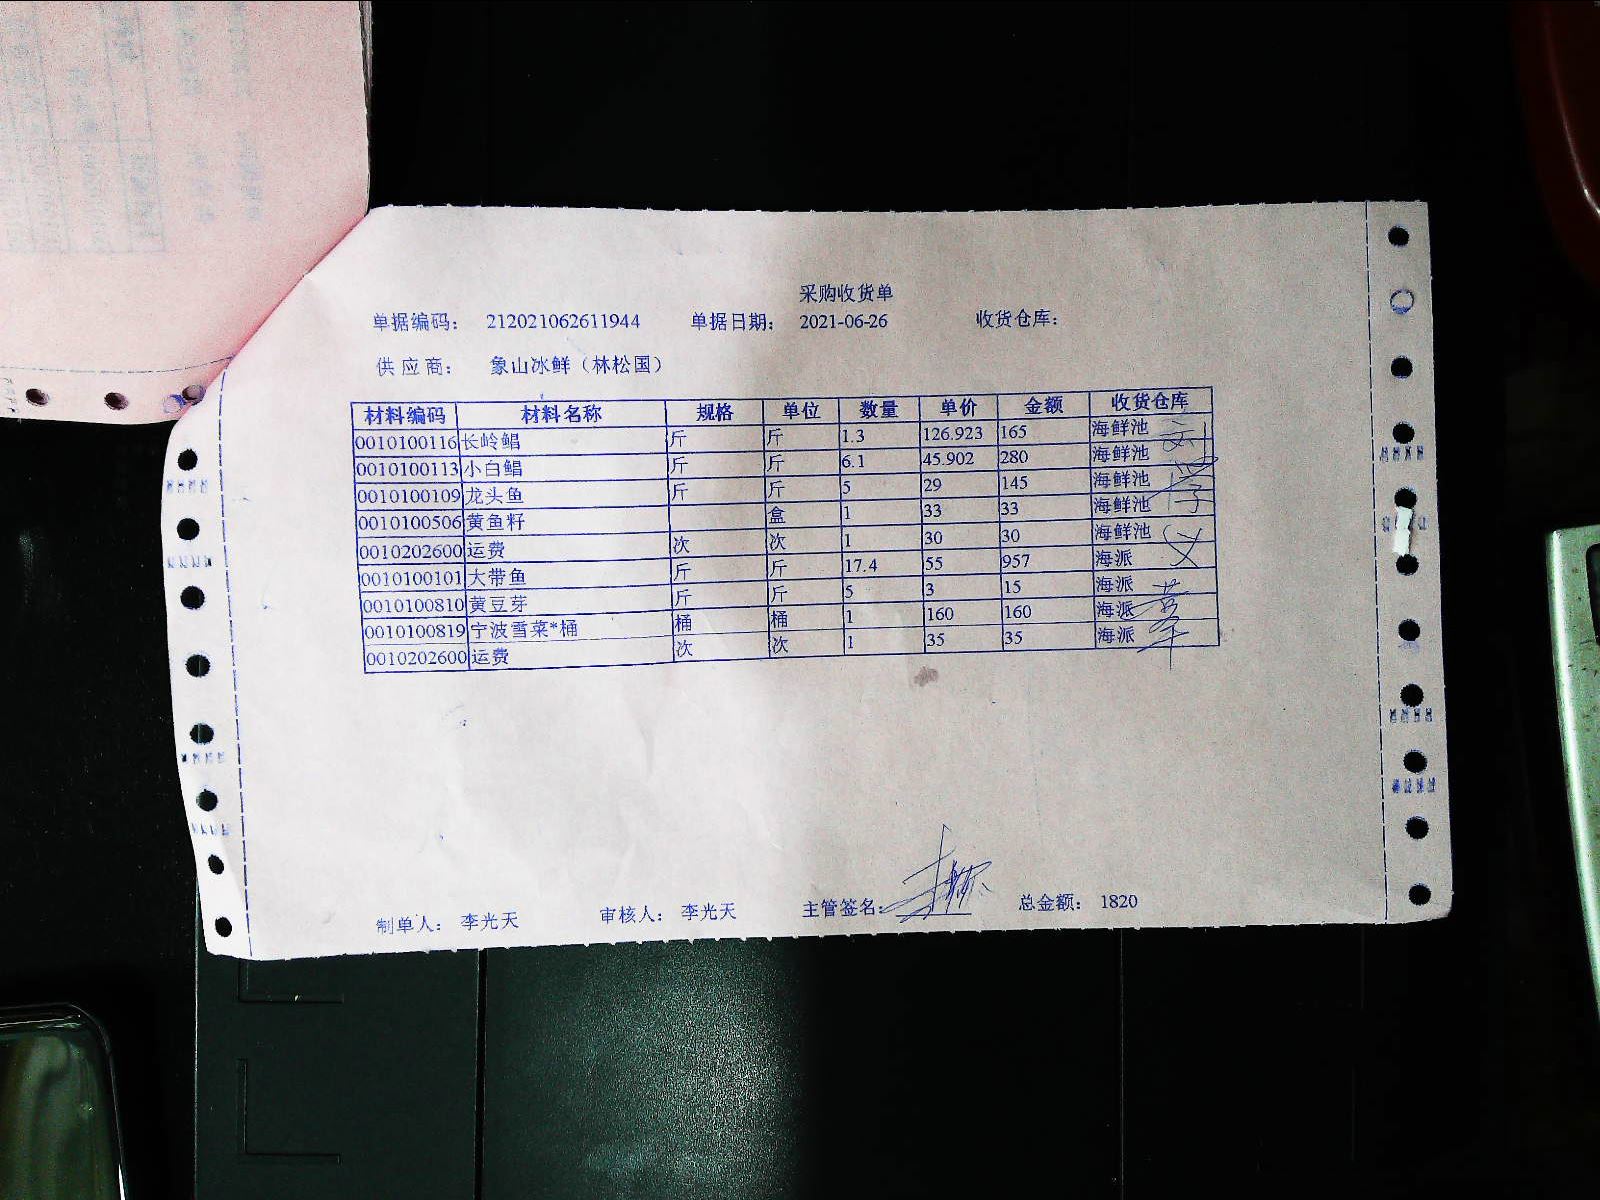 采购收货单
单据编码： 212021062611944 单据日期： 2021-06-26 收货仓库：
供应商： 象山冰鲜（林松国）
材料编码 材料名称 规格 单位 数量 单价 金额 收货仓库
0010100116 长岭鲳 斤 斤 1.3 126.923 165 海鲜池
0010100113 小白鲳 斤 斤 6.1 45.902 280 海鲜池
0010100109 龙头鱼 斤 斤 5 29 145 海鲜池
0010100506 黄鱼籽 盒 1 33 33 海鲜池
0010202600 运费 次 次 1 30 30 海鲜池
0010100101 大带鱼 斤 斤 17.4 55 957 海派
0010100810 黄豆芽 斤 斤 5 3 15 海派
0010100819 宁波雪菜*桶 桶 桶 1 160 160 海派
0010202600 运费 次 次 1 35 35 海派
制单人： 李光天 审核人： 李光天 主管签名： 总金额： 1820